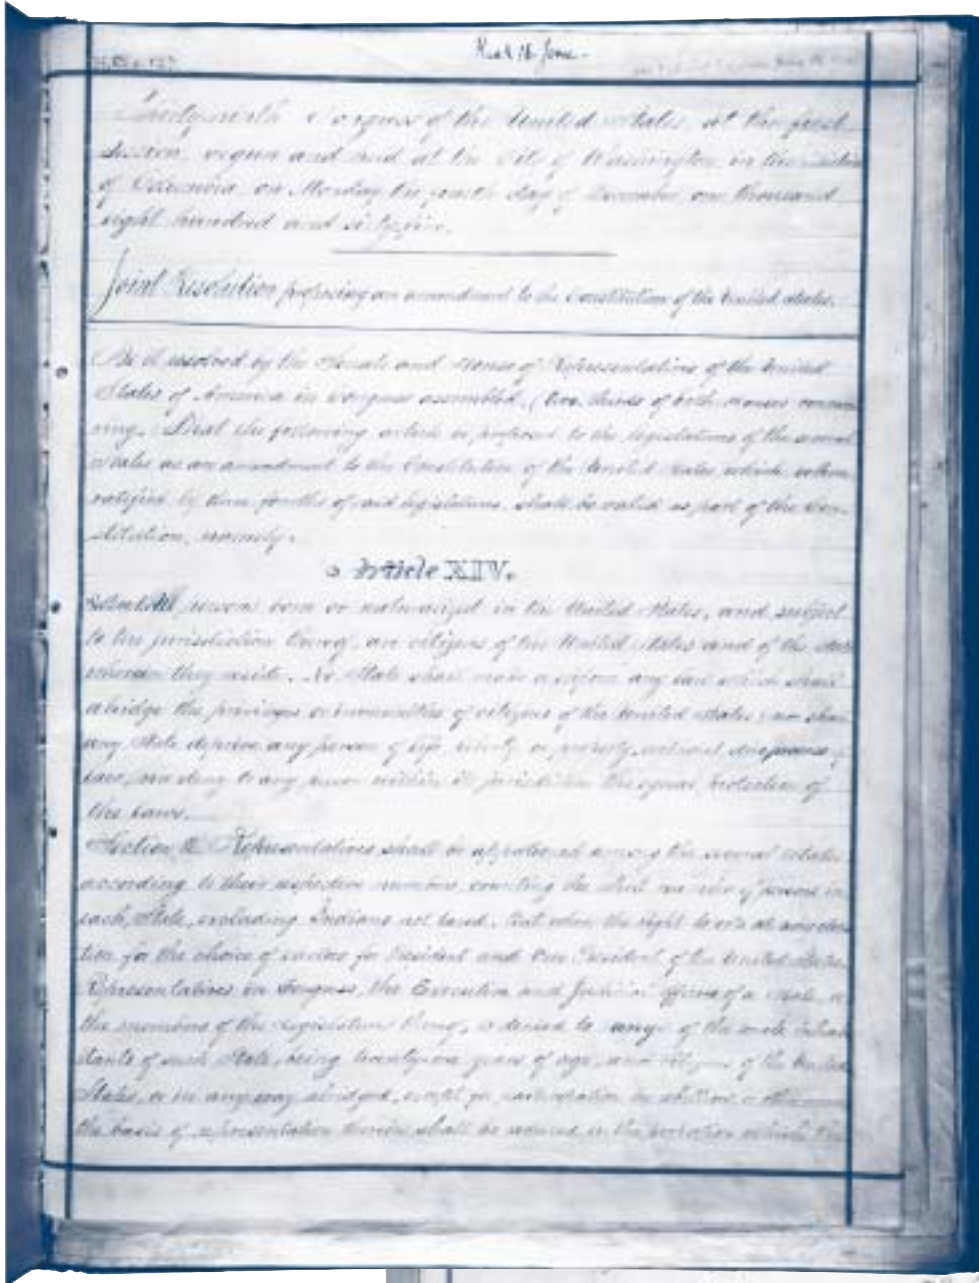 Thirty-ninth Congress of the United States, at the first
Session, begun and held at the City of Washington, in the District
of Columbia, on Monday the fourth day of December one thousand
eight hundred and sixty-five.
Joint Resolution proposing an amendment to the Constitution of the United States.
Be it resolved by the Senate and House of Representatives of the United
States of America in Congress assembled, (two thirds of both Houses concur
ring,) That the following article be proposed to the legislatures of the several
States as an amendment to the Constitution of the United States, which, when
ratified by three fourths of said legislatures, shall be valid as part of the Con-
stitution, namely:
Article XIV.
Section 1. All persons born or naturalized in the United States, and subject
to the jurisdiction thereof, are citizens of the United States and of the State
wherein they reside. No State shall make or enforce any law which shall
abridge the privileges or immunities of citizens of the United States; nor shall
any State deprive any person of life, liberty, or property, without due process of
law, nor deny to any person within its jurisdiction the equal protection of
the laws.
Section 2. Representatives shall be apportioned among the several States
according to their respective numbers, counting the whole number of persons in
each State, excluding Indians not taxed. But when the right to vote at any elec
tion for the choice of electors for President and Vice President of the United States,
Representatives in Congress, the Executive and Judicial officers of a State, or
the members of the Legislature thereof, is denied to any of the male inhabi
tants of such State, being twenty-one years of age, and citizens of the United
States, or in any way abridged, except for participation in rebellion, or other crime,
the basis of representation therein shall be reduced in the proportion which the